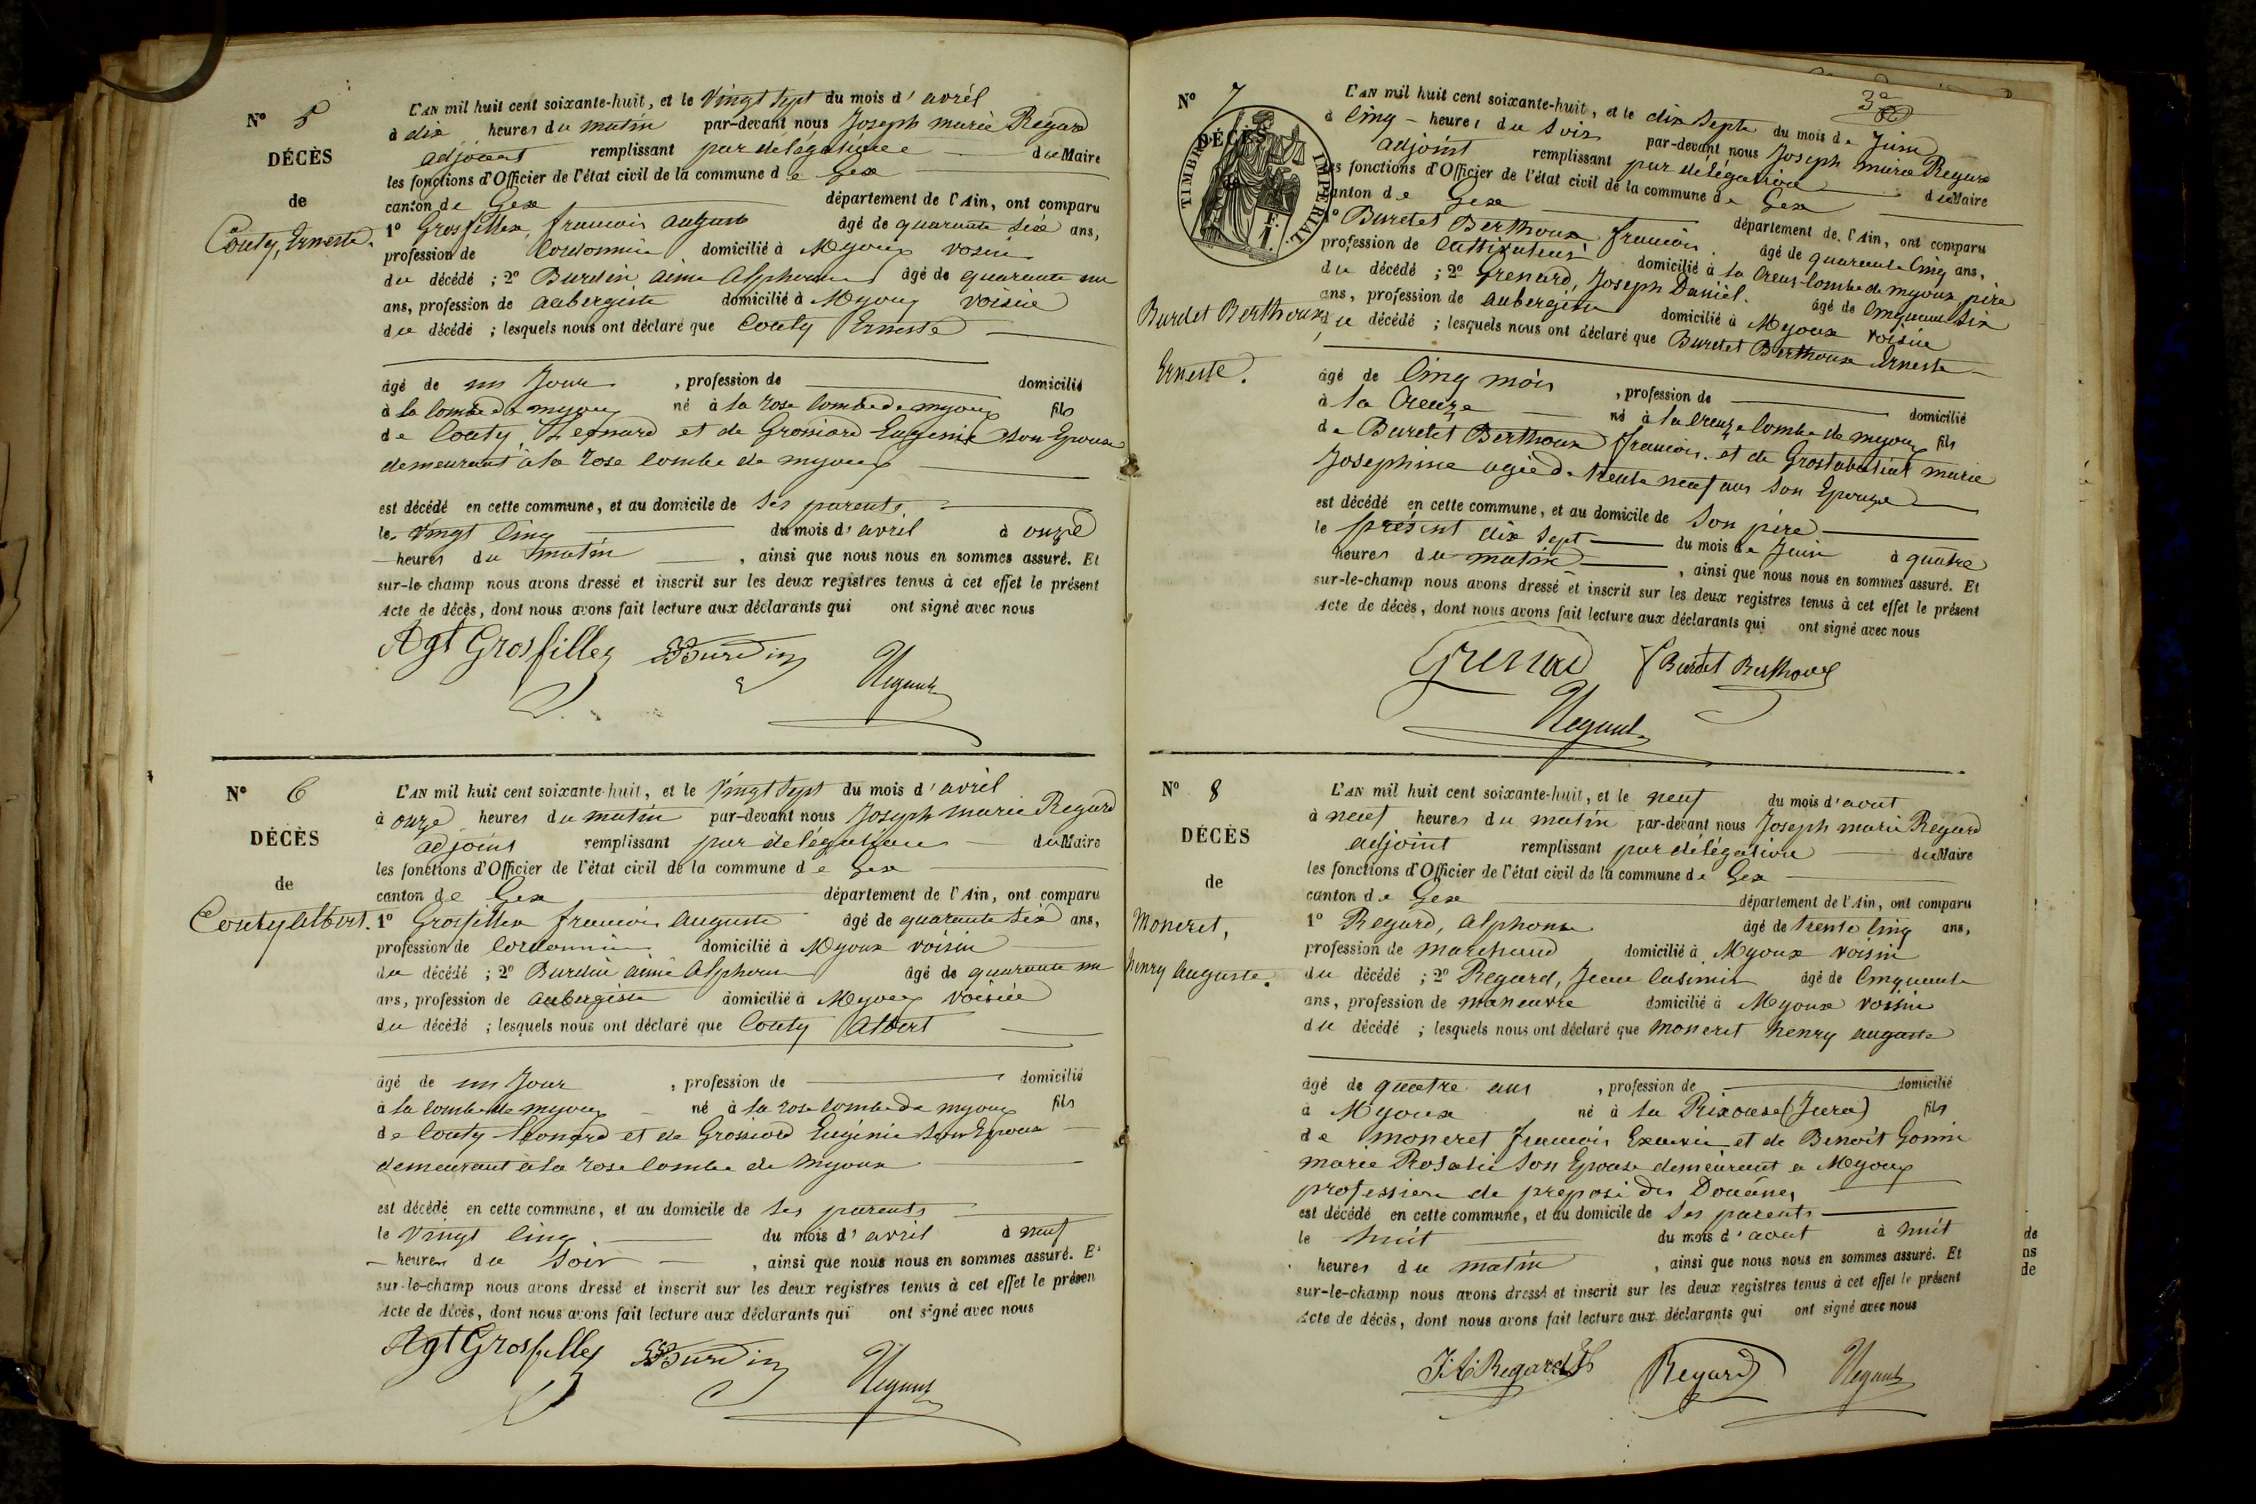 N° 5
DÉCÈS
de
Couty, Erneste.
L'AN mil huit cent soixante-huit, et le vingt sept du mois d' avril
à dix heures du matin par-devant nous Joseph marie Regard
adjoint remplissant par délégation du Maire
les fonctions d'Officier de l'état civil de la commune de Gex
canton de Gex département de l'Ain, ont comparu
1° Grosfillex, francois august âgé de quarante six ans,
profession de Cordonnier domicilié à Myoux voisin
du décédé ; 2° Burdin aimé Alphonse âgé de quarante un
ans, profession de aubergiste domicilié à Myoux voisin
du décédé ; lesquels nous ont déclaré que Couty Erneste
âgé de un Jour , profession de domicilié
à la Combe de myoux né à la rose Combe de myoux fils
de Couty, Léonard et de Grossiord Eugénie son Epouse
demeurant à la rose Combe de myoux
est décédé en cette commune, et au domicile de ses parents
le vingt Cinq du mois d' avril à onze
heures du matin , ainsi que nous nous en sommes assuré. Et
sur-le-champ nous avons dressé et inscrit sur les deux registres tenus à cet effet le présent
Acte de décès, dont nous avons fait lecture aux déclarants qui ont signé avec nous
Agt Grosfillex Burdin Regard
N° 6
DÉCÈS
de
Couty Albert.
L'AN mil huit cent soixante-huit, et le vingt sept du mois d' avril
à onze heures du matin par-devant nous Joseph marie Regard
adjoint remplissant par délégation du Maire
les fonctions d'Officier de l'état civil de la commune de Gex
canton de Gex département de l'Ain, ont comparu
1° Grosfillex francois Auguste âgé de quarante six ans,
profession de Cordonnier domicilié à Myoux voisin
du décédé ; 2° Burdin aimé Alphonse âgé de quarante un
ans, profession de aubergiste domicilié à Myoux voisin
du décédé ; lesquels nous ont déclaré que Couty Albert
âgé de un Jour , profession de domicilié
à la Combe de myoux né à la rose Combe de myoux fils
de Couty Léonard et de Grossiord Eugénie son Epouse
demeurant à la rose Combe de myoux
est décédé en cette commune, et au domicile de ses parents
le vingt Cinq du mois d' avril à neuf
heures du soir , ainsi que nous nous en sommes assuré. E
sur-le-champ nous avons dressé et inscrit sur les deux registres tenus à cet effet le présen
Acte de décès, dont nous avons fait lecture aux déclarants qui ont signé avec nous
Agt Grosfillex Burdin Regard
3e
N° 7
DÉCÈS
TIMBRE IMPÉRIAL
1 F.
Burdet Berthoux,
Erneste.
L'AN mil huit cent soixante-huit, et le dix Septe du mois de Juin
à Cinq heures du Soir par-devant nous Joseph marie Regard
adjoint remplissant par délégation du Maire
les fonctions d'Officier de l'état civil de la commune de Gex
canton de Gex département de l'Ain, ont comparu
1° Burdet Berthoux francois. âgé de quarante Cinq ans,
profession de Cultivateur domicilié à la Creus Combe de myoux père
du décédé ; 2° Grenard, Joseph Daniel. âgé de Cinquante six
ans, profession de aubergiste domicilié à Myoux voisin
du décédé ; lesquels nous ont déclaré que Burdet Berthoux Erneste
âgé de Cinq mois , profession de domicilié
à la Creuze né à la Creuze Combe de myoux fils
de Burdet Berthoux francois. et de marie
Josephine agée de trente neuf ans son Epouze
est décédé en cette commune, et au domicile de son père
le présent dix sept du mois de Juin à quatre
heures du matin , ainsi que nous nous en sommes assuré. Et
sur-le-champ nous avons dressé et inscrit sur les deux registres tenus à cet effet le présent
Acte de décès, dont nous avons fait lecture aux déclarants qui ont signé avec nous
Grenard f Burdet Berthoux
Regard
N° 8
DÉCÈS
de
Moneret,
henry Auguste.
L'AN mil huit cent soixante-huit, et le neuf du mois d' aout
à neuf heures du matin par-devant nous Joseph marie Regard
adjoint remplissant par délégation du Maire
les fonctions d'Officier de l'état civil de la commune de Gex
canton de Gex département de l'Ain, ont comparu
1° Regard, Alphonse âgé de trente Cinq ans,
profession de marchand domicilié à Myoux voisin
du décédé ; 2° Regard, Jean Casimir âgé de Cinquante
ans, profession de maneuvre domicilié à Myoux voisin
du décédé ; lesquels nous ont déclaré que moneret henry auguste
âgé de quatre ans , profession de domicilié
à Myoux né à la Rixouse (Jura) fils
de moneret francois Exavier et de Benoît Gonin
marie Rosalie son Epouse demeurant a Myoux
profession de préposé des Douanes
est décédé en cette commune, et au domicile de ses parents
le huit du mois d' aout à huit
heures du matin , ainsi que nous nous en sommes assuré. Et
sur-le-champ nous avons dressé et inscrit sur les deux registres tenus à cet effet le présent
Acte de décès, dont nous avons fait lecture aux déclarants qui ont signé avec nous
J. C. Regard Regard Regard
de
ns
de